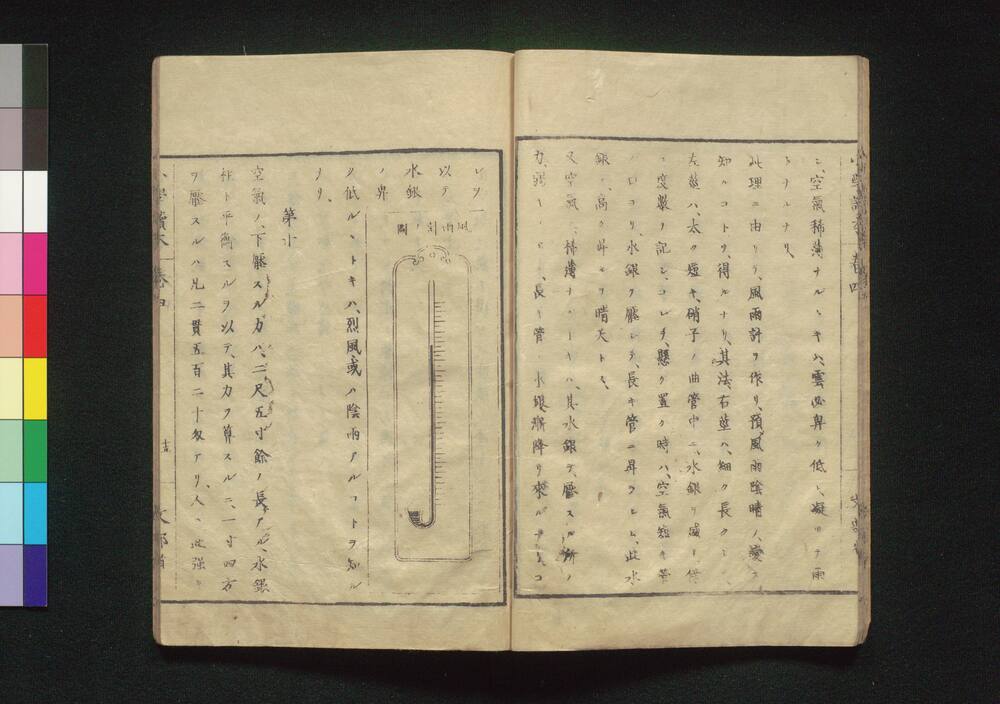 ニ、空氣稀薄ナルトキハ、雲必卑ク低レ、凝リテ雨
トナルナリ、
此理ニ由リテ、風雨計ヲ作リ、預風雨陰晴ノ、變ヲ
知ルコトヲ、得ルナリ、其法、右
左 太ク短キ、硝子ノ曲管中ニ、水銀ヲ
度數ヲ記シ、コレヲ、懸ケ置ク時ハ、空氣短キ管
ノ口ヨリ、水銀ヲ壓シテ、長キ管ニ昇ラシム、此水
銀ノ、高ク昇ルヲ晴天トシ、
又空氣ノ、稀薄ナルトキハ、其水銀ヲ、壓スル所ノ
力、弱キ 長キ管ノ水銀漸降リ來ルナリ、コ
レヲ
以テ
水銀
ノ昇
風雨計ノ圖
ノ低ル、トキハ、烈風或ハ陰雨アルコトヲ知ル
ナリ、
第十
空氣ノ、下壓スル力ハ、二尺五寸餘ノ長アル、水銀
柱ト平齊スルヲ以テ、其力ヲ算スルニ、一寸四方
ヲ壓スルハ凡二貫五百二十匁アリ、人ハ此強キ
小學讀本 卷四
文部省